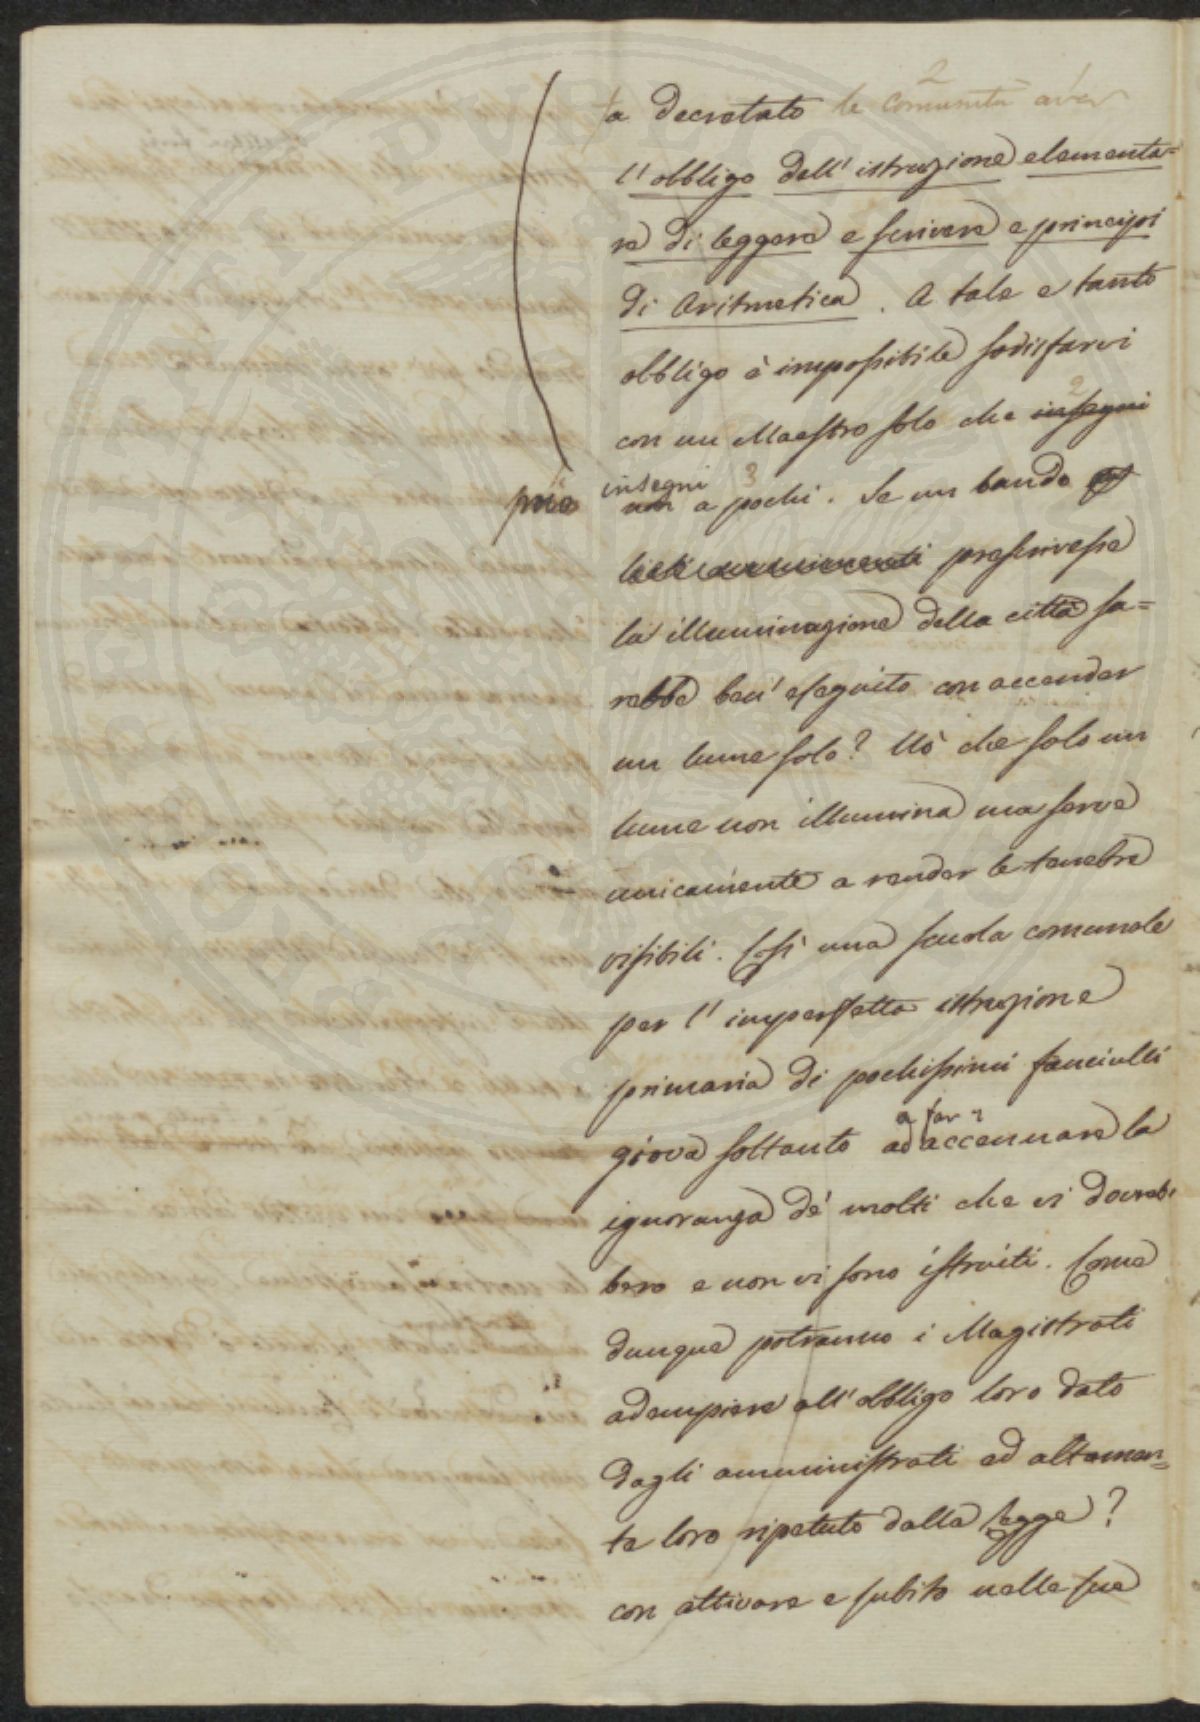 a decretato le comunità aver
l'obbligo dell'istruzione elementa=
re di leggere e scrivere e principi
di Aritmetica. A tale e tanto
obbligo è impossibile sodisfarvi
con un Maestro solo che insegni
insegni
può non a pochi. Se un bando
prescrivesse
la illuminazione della città sa=
rebbe ben' eseguito con accender
un lume solo? Nò che solo un
lume non illumina ma serve
unicamente a render le tenebre
visibili. Così una scuola comunale
per l'imperfetta istruzione
primaria di pochissimi fanciulli
a far
giova soltanto ad accennare la
ignoranza de' molti che vi dovreb
bero e non vi sono istruiti. Come
dunque potranno i Magistrati
adempiere all'obbligo loro dato
dagli amministrati ed altamen=
te loro ripetuto dalla legge?
con attivare e subito nelle sue